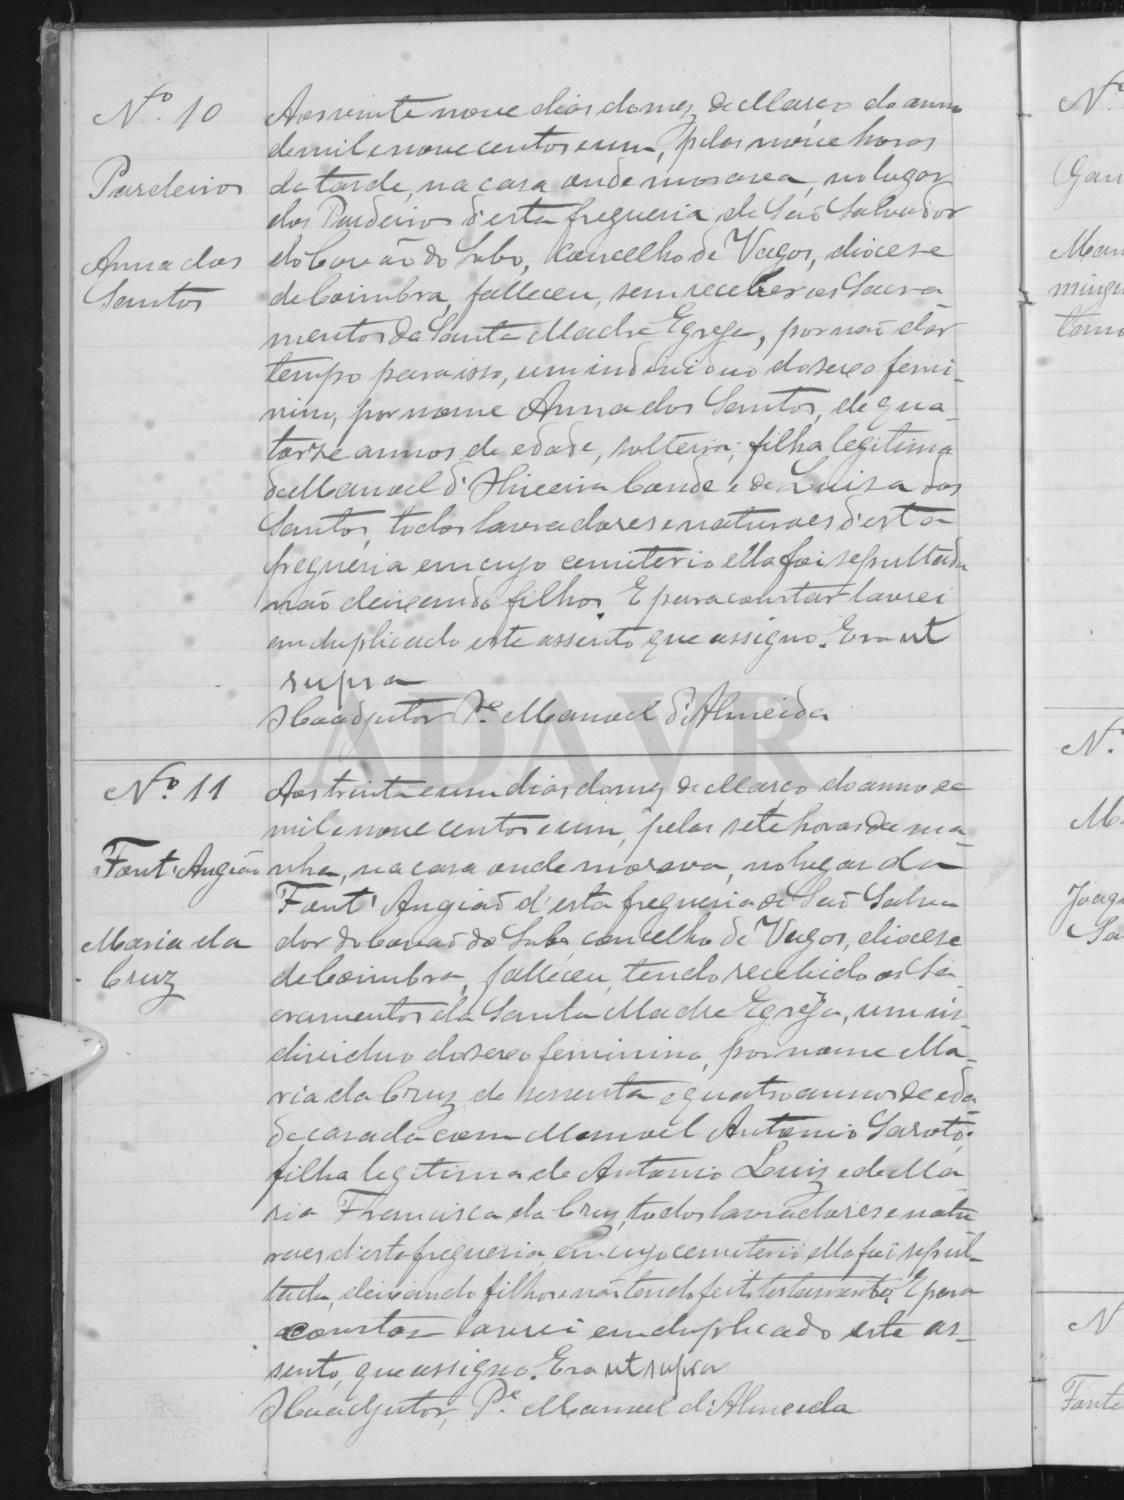 Nº. 10
Pardeiros
Anna dos
Santos
Aos vinte nove dias do mez de Março do anno
de mil e nove centos e um, pelas nove horas
da tarde, na casa onde morava, no lugar
dos Pardeiros d'esta freguesia de São Salvador
do Covão do Lobo, concelho de Vagos, diocese
de Coimbra, falleceu, sem receber os Sacra-
mentos da Santa Madre Egreja, por não dar
tempo para isso, um individuo do sexo femi-
nino, por nome Anna dos Santos, de qua-
torze annos de edade, solteira, filha legitima
de Manoel d'Oliveira Conde e de Luisa dos
Santos, todos lavradores e naturaes d'esta
freguesia em cujo cemiterio ella foi sepultada
não deixando filhos. E para constar lavrei
em duplicado este assento que assigno. Era ut
supra
O Coadjutor Pe. Manoel d'Almeida
Nº. 11
Font'Angião
Maria da
Cruz
Aos trinta e um dias do mez de Março do anno de
mil e nove centos e um, pelas sete horas da ma-
nha, na casa onde morava, no lugar da
Font' Angião d'esta freguesia de São Salva
dor do Covão do Lobo, concelho de Vagos, diocese
de Coimbra, falleceu, tendo recebido os Sa-
cramentos da Santa Madre Egreja, um in-
dividuo do sexo feminino, por nome Ma-
ria da Cruz de sessenta e quatro annos de eda-
de casada com Manoel Antonio Saroto,
filha legitima de Antonio Luiz e de Ma-
ria Francisca da Cruz, todos lavradores e natu
raes d'esta freguesia, em cujo cemiterio ella foi sepul-
tada, deixando filhos e não tendo feito testamento. E para
constar lavrei em duplicado este as-
sento, que assigno. Era ut supra
O Coadjutor, Pe. Manoel d'Almeida
ADAVR
Nº
Man
Nº.
N
Fonte